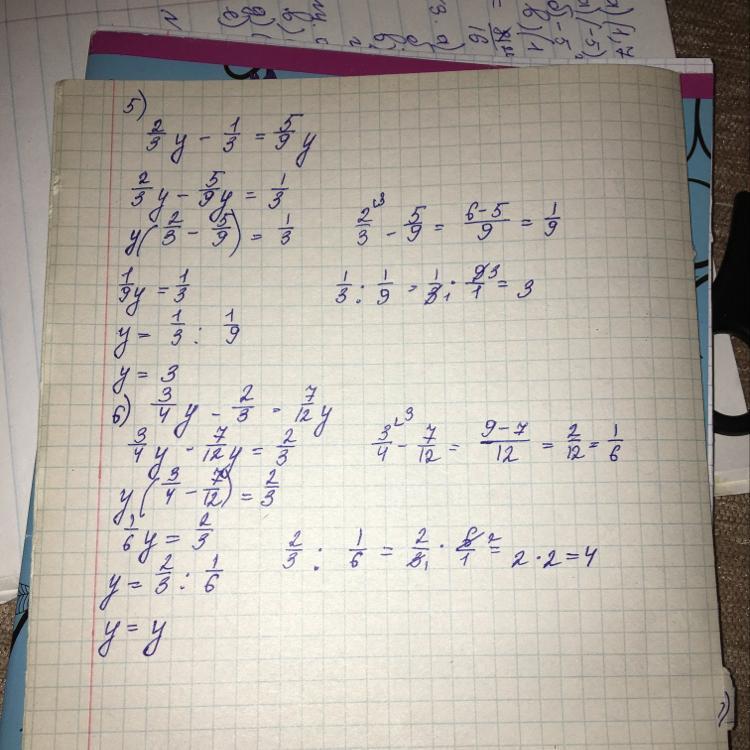 5)
2/3 y - 1/3 = 5/9 y
2/3 y - 5/9 y = 1/3
y(2/3 - 5/9) = 1/3
2/3 ³ - 5/9 = (6-5)/9 = 1/9
1/9 y = 1/3
1/3 : 1/9 = 1/3 ₁ · 9/1 ³ = 3
y = 1/3 : 1/9
y = 3
6) 3/4 y - 2/3 = 7/12 y
3/4 y - 7/12 y = 2/3
3/4 ³ - 7/12 = (9-7)/12 = 2/12 = 1/6
y(3/4 - 7/12) = 2/3
1/6 y = 2/3
2/3 : 1/6 = 2/3 ₁ · 6/1 ² = 2·2=4
y = 2/3 : 1/6
y = y